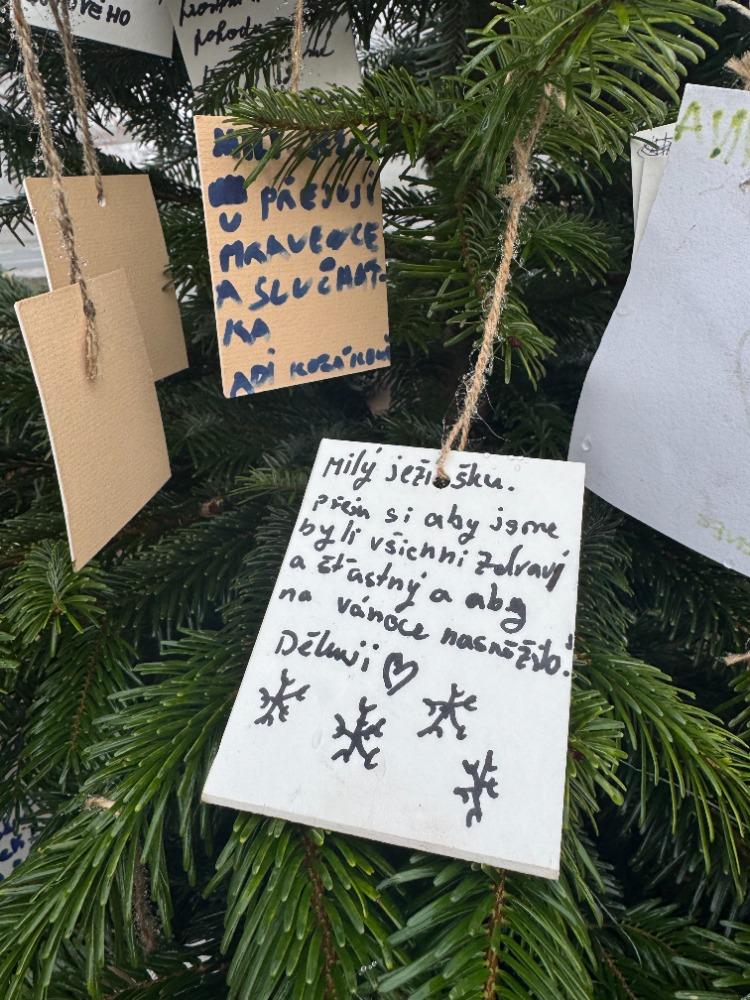 OVÉHO
pohodu
U PŘEJUJI
MRAVENCE
A SLUCHÁT-
KA
ADI KOZÁKOVÁ
Milý ježíšku.
přeju si aby jsme
byli všichni zdraví
a šťastný a aby
na vánoce nasněžilo.
Děkuji ♡